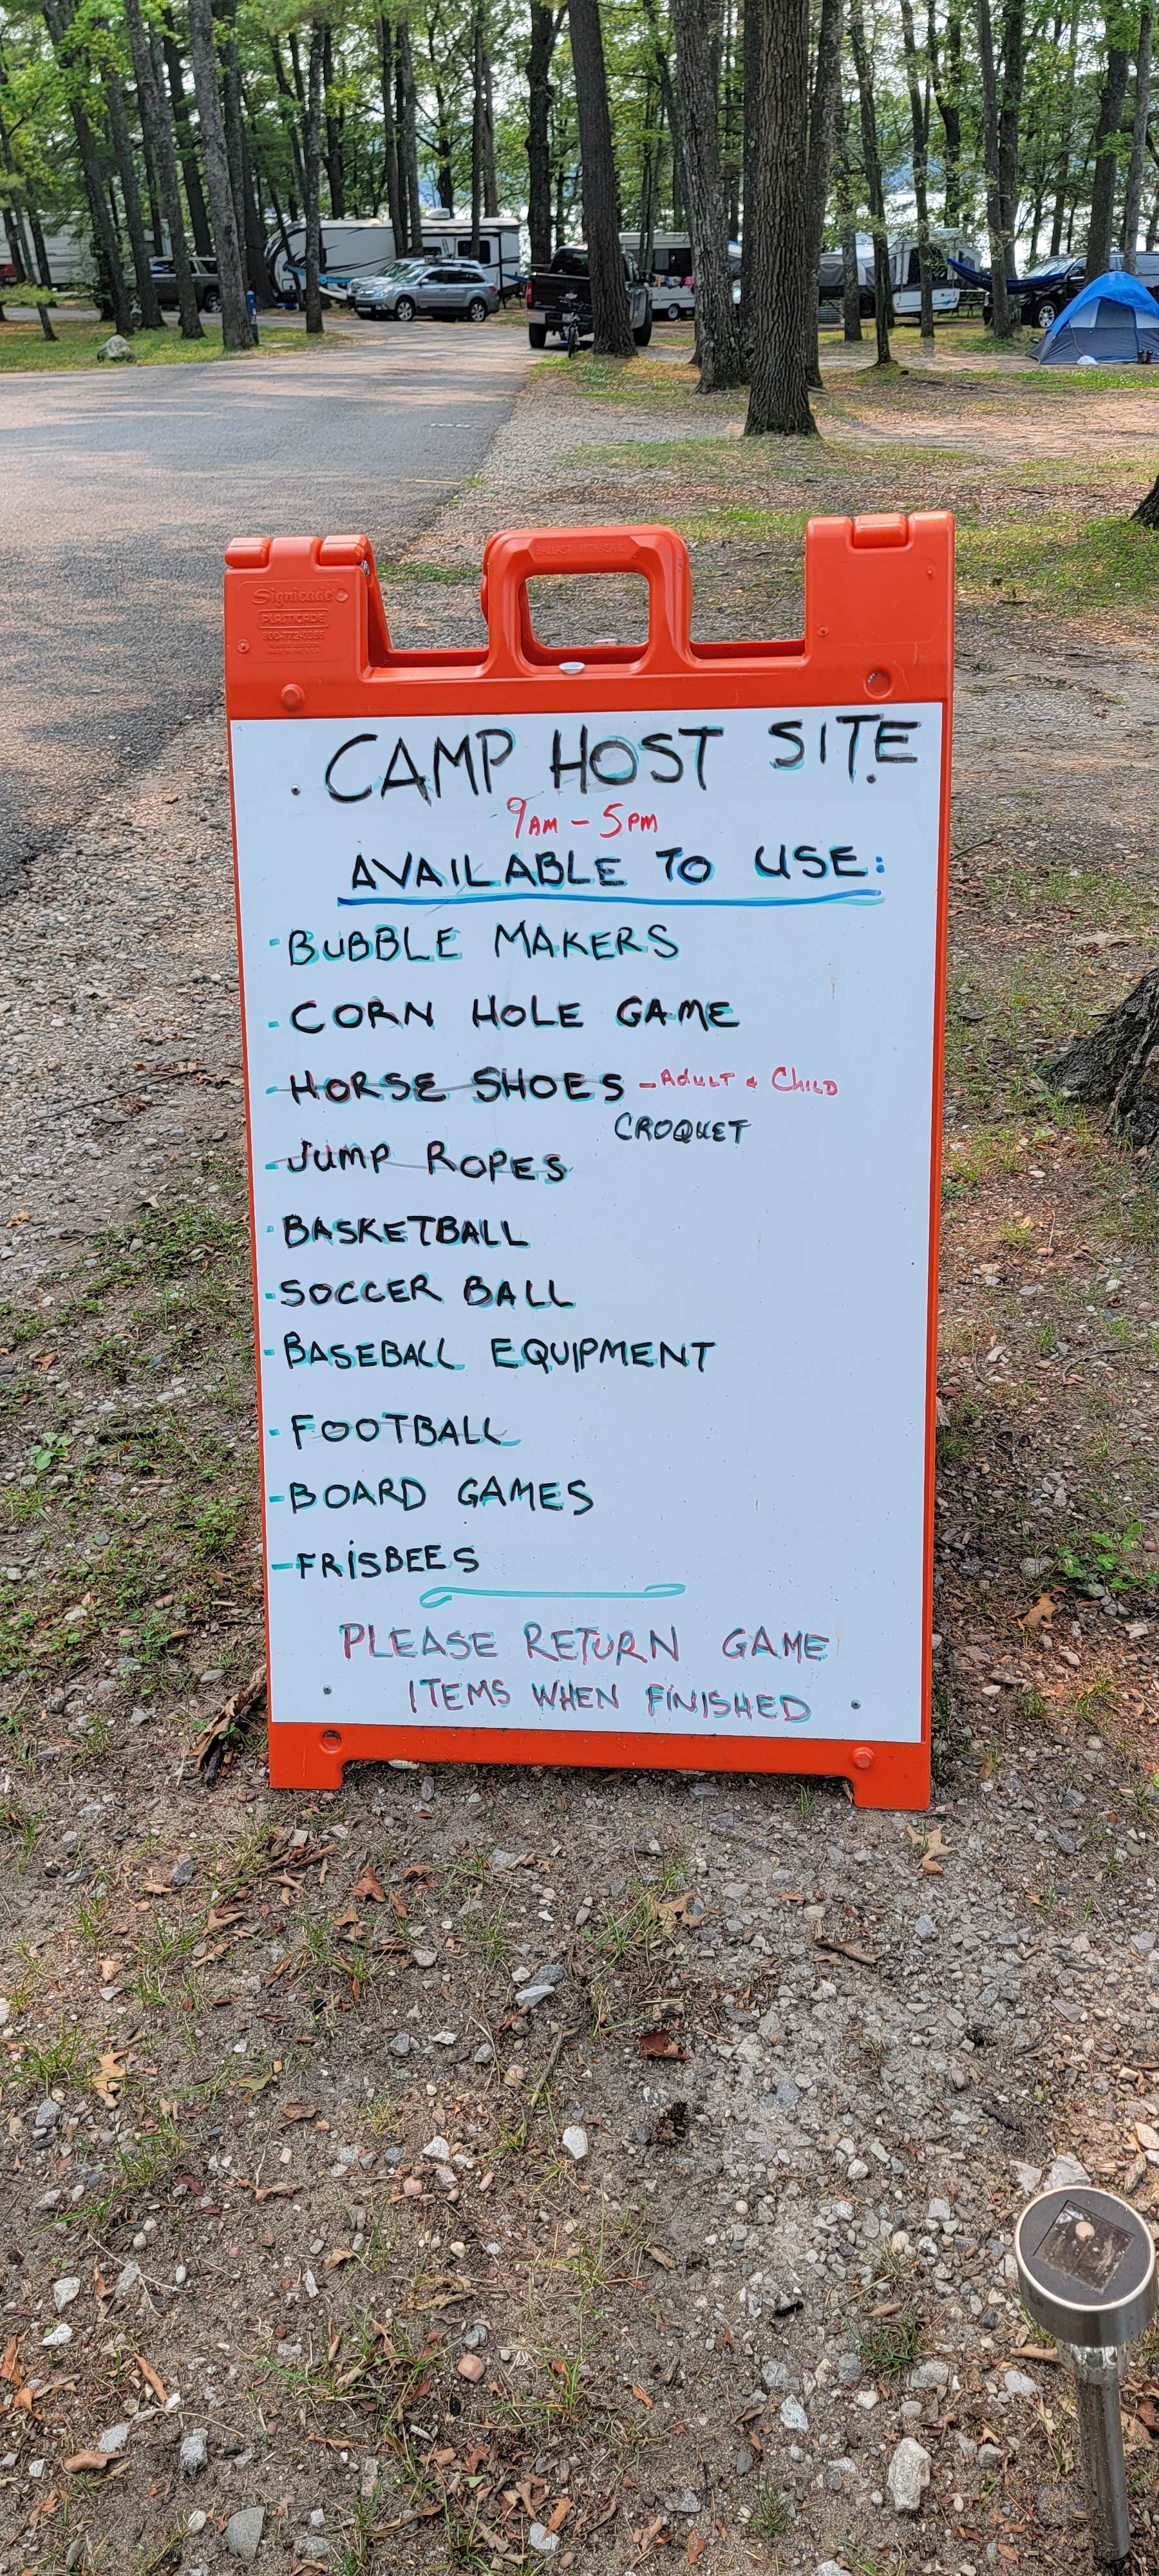 BALLAST WITH SAND
Signicade
PLASTICADE
800-772-0355
CAMP HOST SITE
9AM - 5PM
AVAILABLE TO USE:
- BUBBLE MAKERS
- CORN HOLE GAME
- HORSE SHOES - ADULT & CHILD
CROQUET
- JUMP ROPES
- BASKETBALL
- SOCCER BALL
- BASEBALL EQUIPMENT
- FOOTBALL
- BOARD GAMES
- FRISBEES
PLEASE RETURN GAME
ITEMS WHEN FINISHED